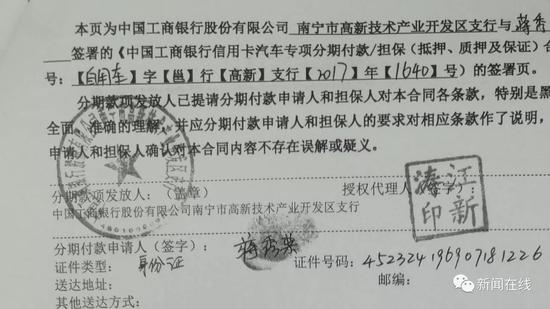 本页为中国工商银行股份有限公司 南宁市高新技术产业开发区支行 与 蒋秀
签署的《中国工商银行信用卡汽车专项分期付款/担保（抵押、质押及保证）合
号：【自用车】字【邕】行【高新】支行【2017】年【1640】号）的签署页。
分期款项发放人已提请分期付款申请人和担保人对本合同各条款，特别是黑
全面、准确的理解，并应分期付款申请人和担保人的要求对相应条款作了说明，
申请人和担保人确认对本合同内容不存在误解或疑义。
分期款项发放人：（盖章） 授权代理人（签字）：
中国工商银行股份有限公司南宁市高新技术产业开发区支行
江新印
分期付款申请人（签字）： 蒋秀荣
证件类型： 身份证 证件号码：452324196907181226
送达地址： 邮编：
其他送达方式：
新闻在线